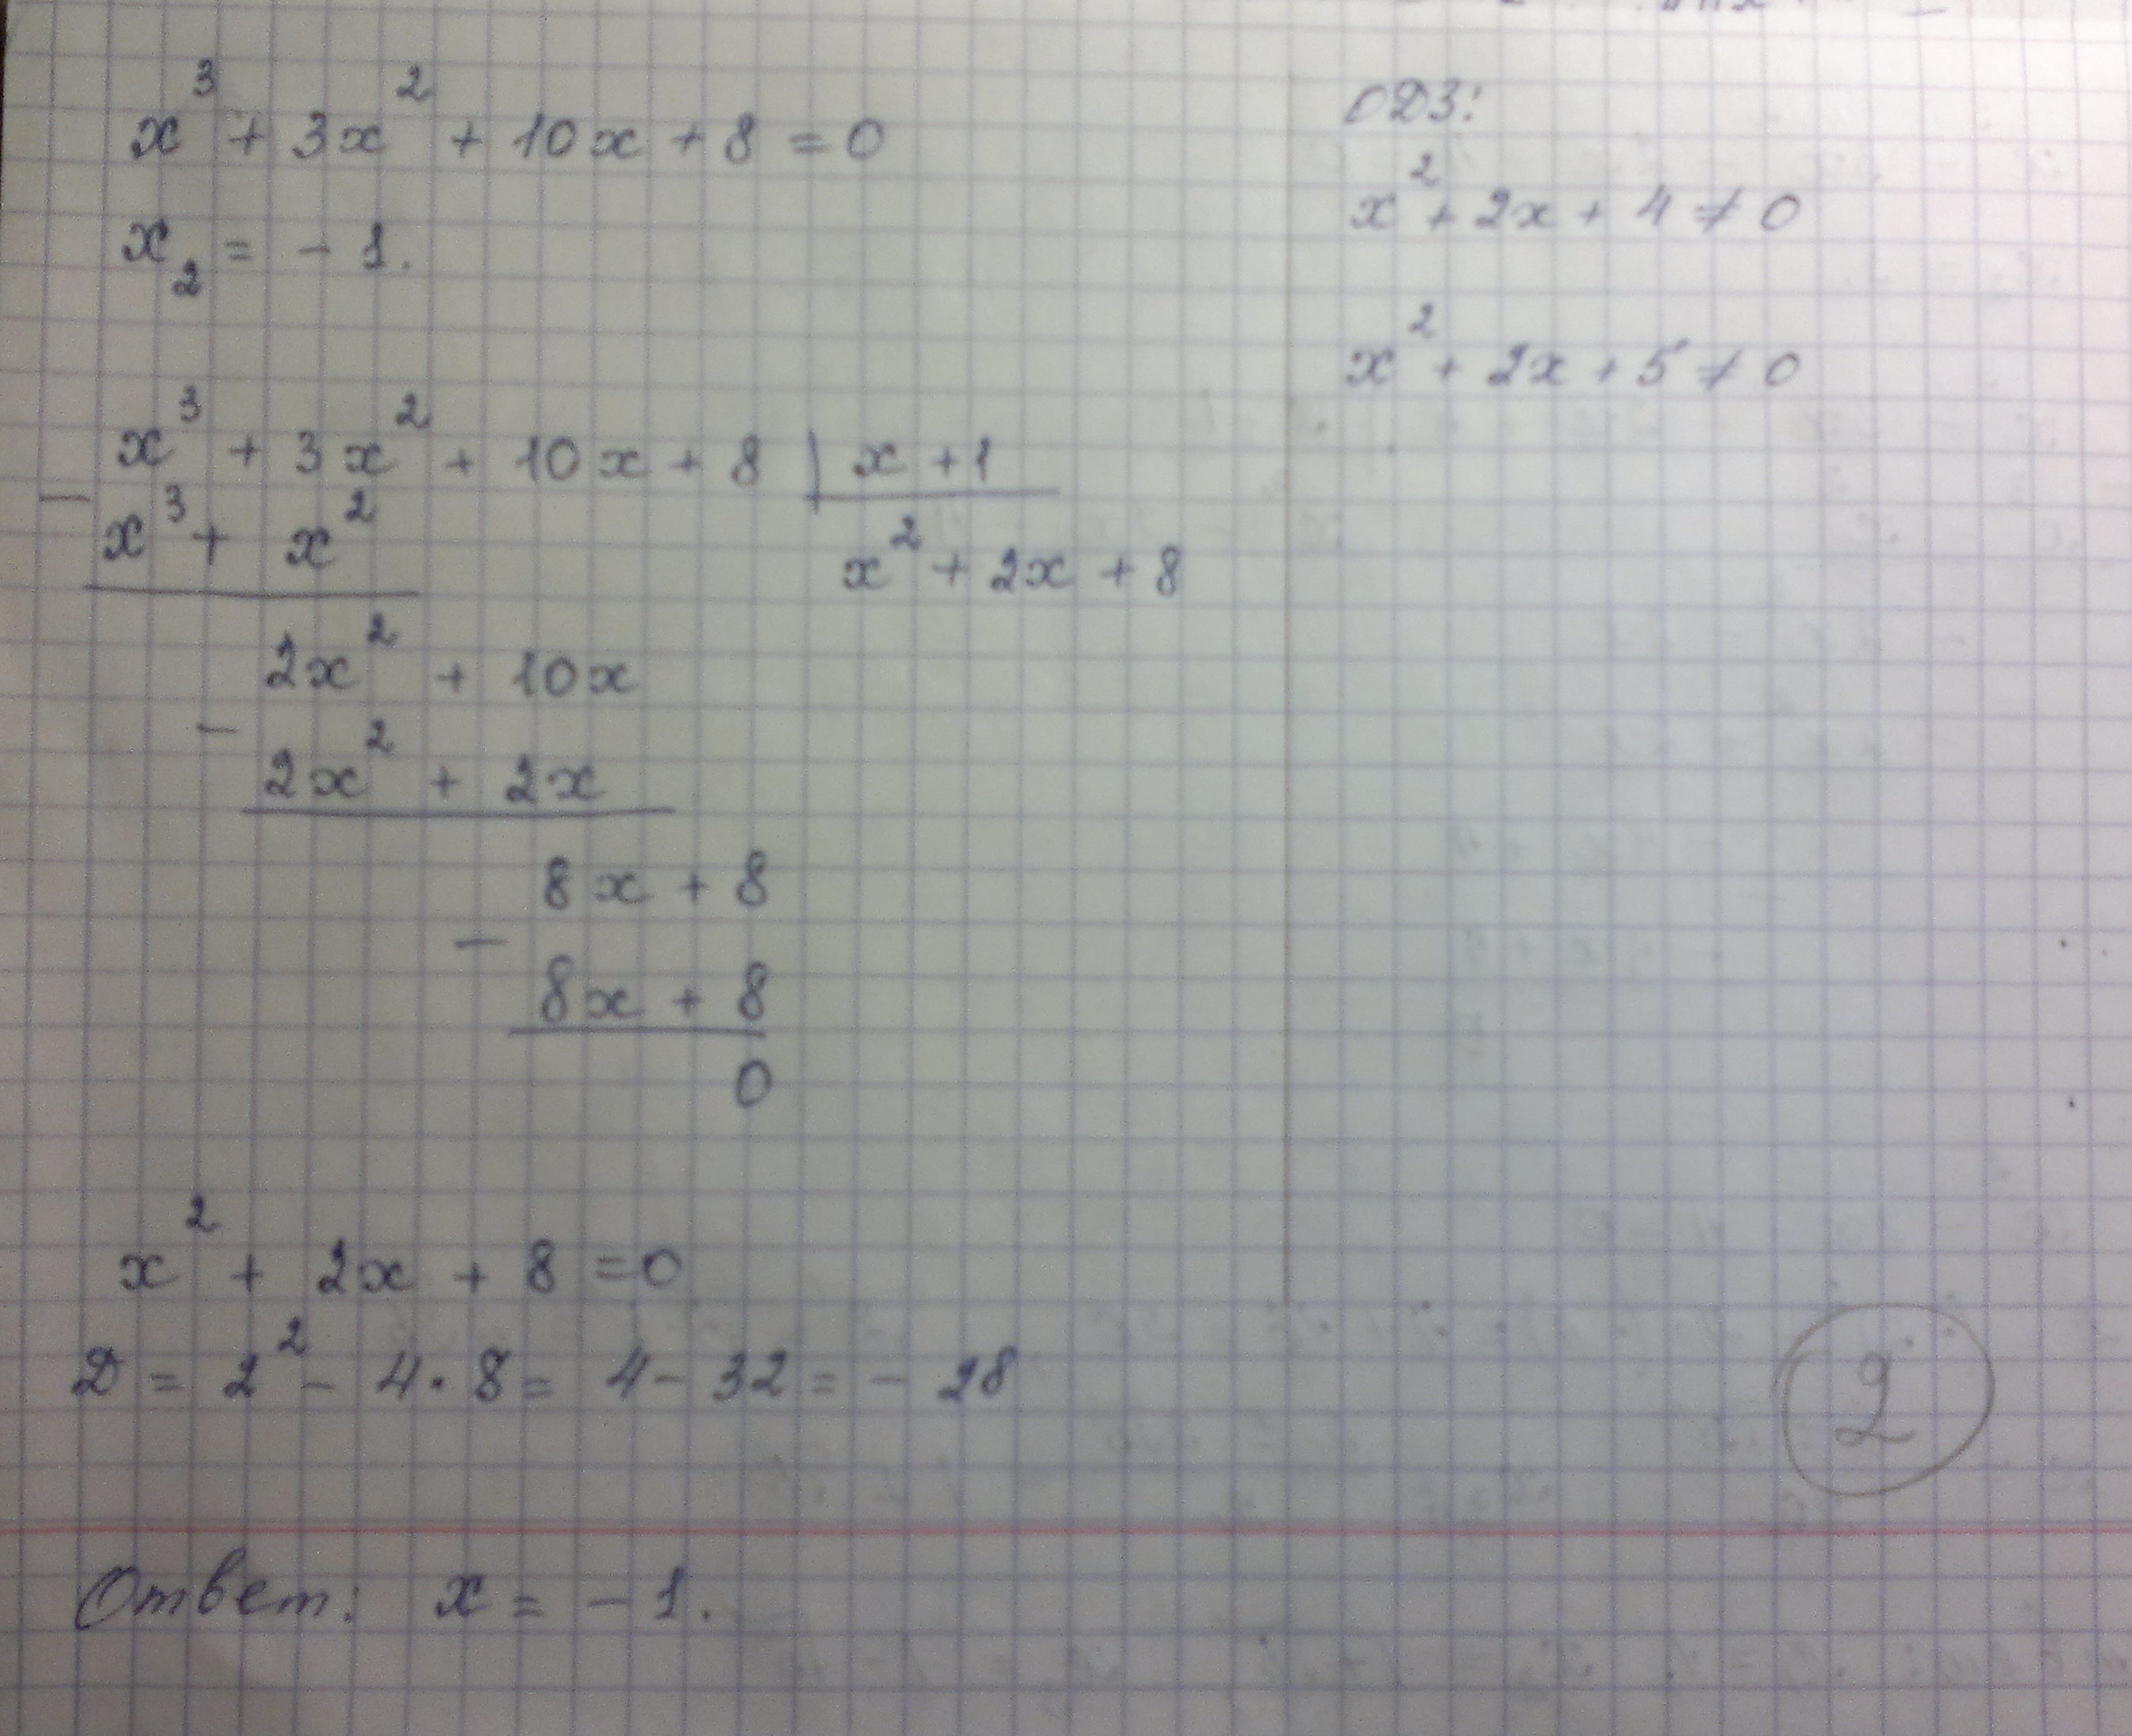 x³ + 3x² + 10x + 8 = 0
x₂ = - 1.
x³ + 3x² + 10x + 8 | x + 1
- x³ + x²
x² + 2x + 8
2x² + 10x
- 2x² + 2x
8x + 8
- 8x + 8
0
x² + 2x + 8 = 0
D = 2² - 4 · 8 = 4 - 32 = - 28
Ответ: x = - 1.
ОДЗ:
x² + 2x + 4 ≠ 0
x² + 2x + 5 ≠ 0
2